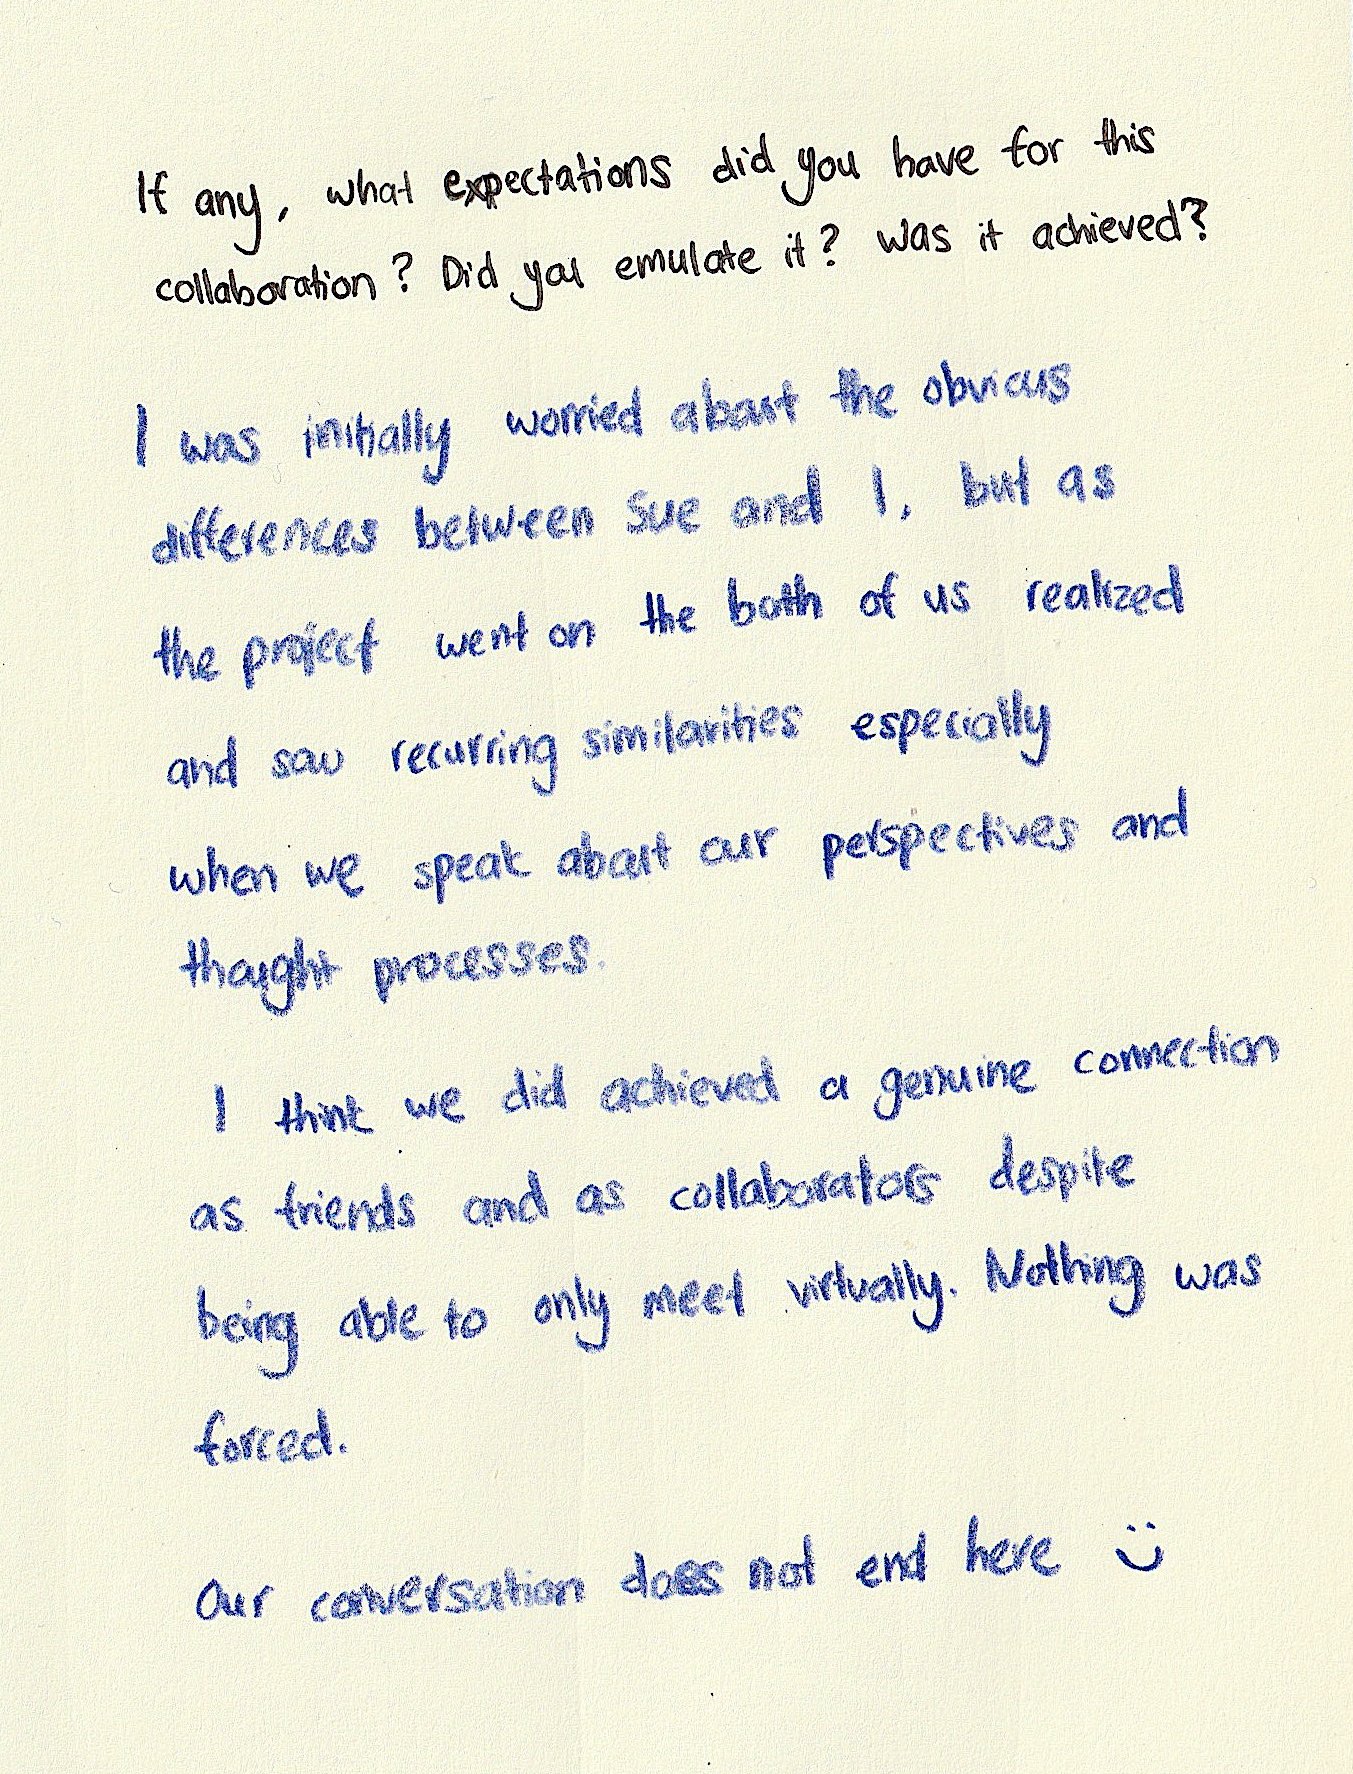 If any, what expectations did you have for this
collaboration? Did you emulate it? Was it achieved?
I was initially worried about the obvious
differences between Sue and I, but as
the project went on the both of us realized
and saw recurring similarities especially
when we speak about our perspectives and
thought processes.
I think we did achieved a genuine connection
as friends and as collaborators despite
being able to only meet virtually. Nothing was
forced.
Our conversation does not end here :)